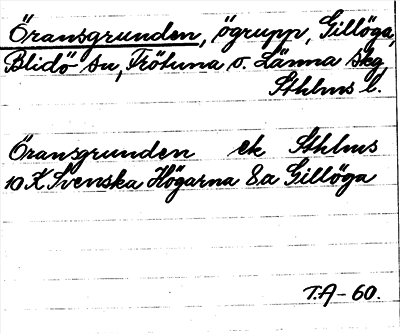 Öransgrunden, ögrupp, Gillöga,
Blidö sn, Frötuna o. Länna skg
Sthlms l.
Öransgrunden ek Sthlms
10 X Svenska Högarna 8a Gillöga
T.A-60.